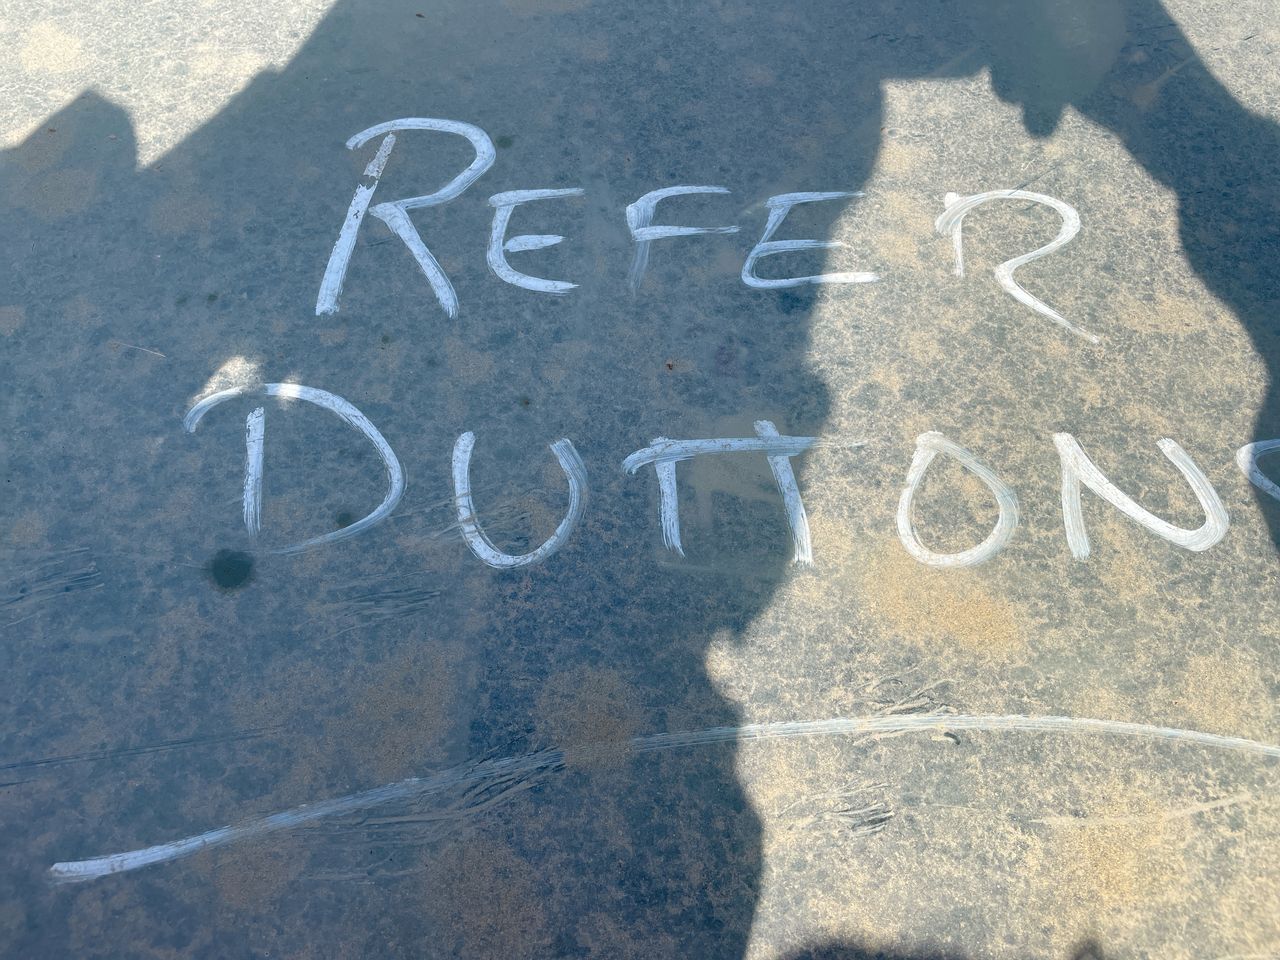 REFER
DUTTONS